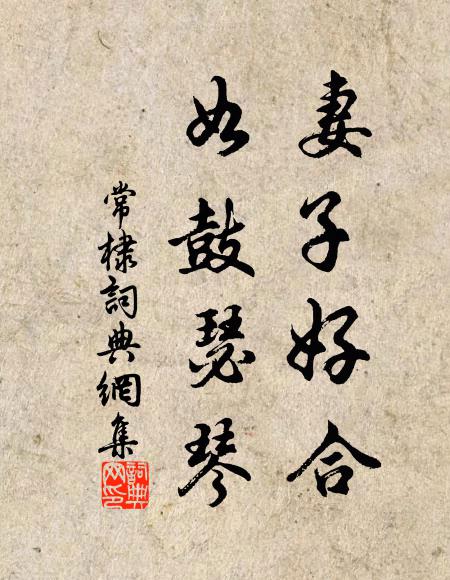 妻子好合
如鼓瑟琴
常棣詞典網集
詞典網印